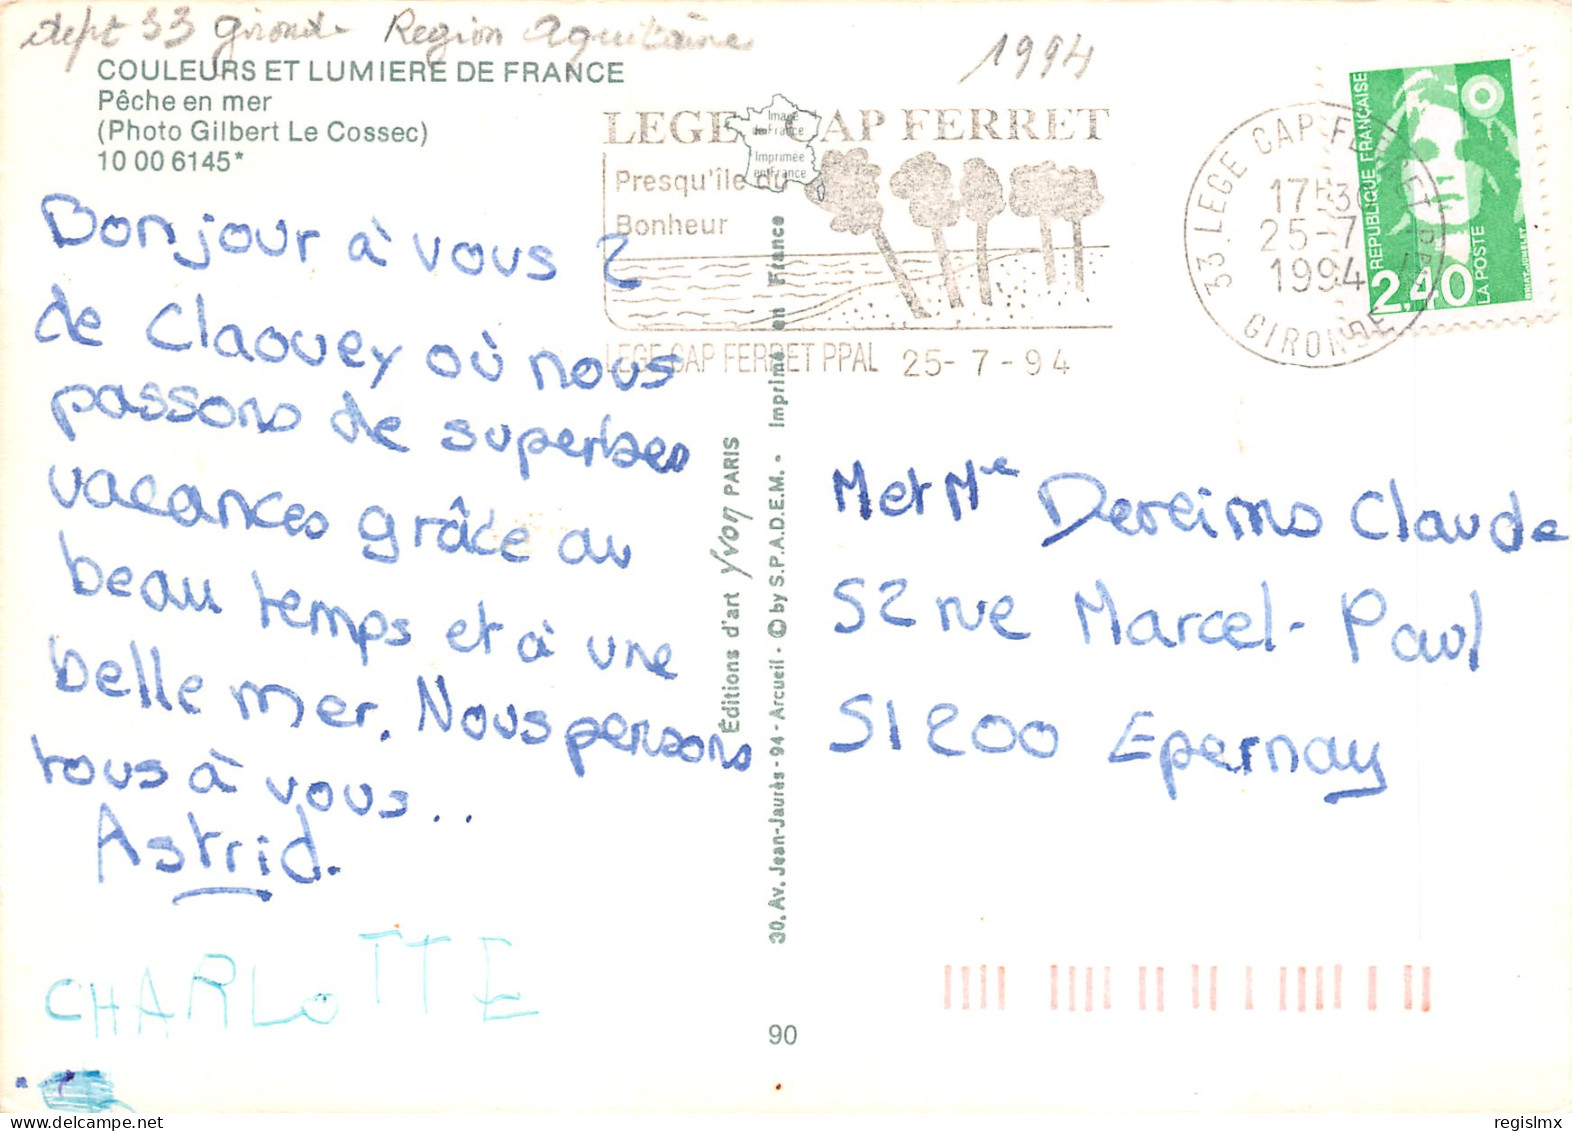 dept 33 Gironde Region Aquitaine
1994
COULEURS ET LUMIERE DE FRANCE
Pêche en mer
(Photo Gilbert Le Cossec)
10 00 6145*
Image
de France
Imprimée
en France
LEGE CAP FERRET
Presqu'île du
Bonheur
LEGE CAP FERRET PPAL 25-7-94
33 LEGE CAP FERRET PPAL
17H30
25-7
1994
GIRONDE
REPUBLIQUE FRANÇAISE
LA POSTE
2,40
Bonjour à vous 2
de Claouey où nous
passons de superbes
vacances grâce au
beau temps et à une
belle mer. Nous pensons
tous à vous..
Astrid.
CHARLOTTE
Éditions d'art Yvon PARIS
30, Av. Jean-Jaurès - 94 - Arcueil - © by S.P.A.D.E.M. - Imprimé en France
M et Me Claude
52 rue Marcel-Paul
51200 Epernay
90
regislmx